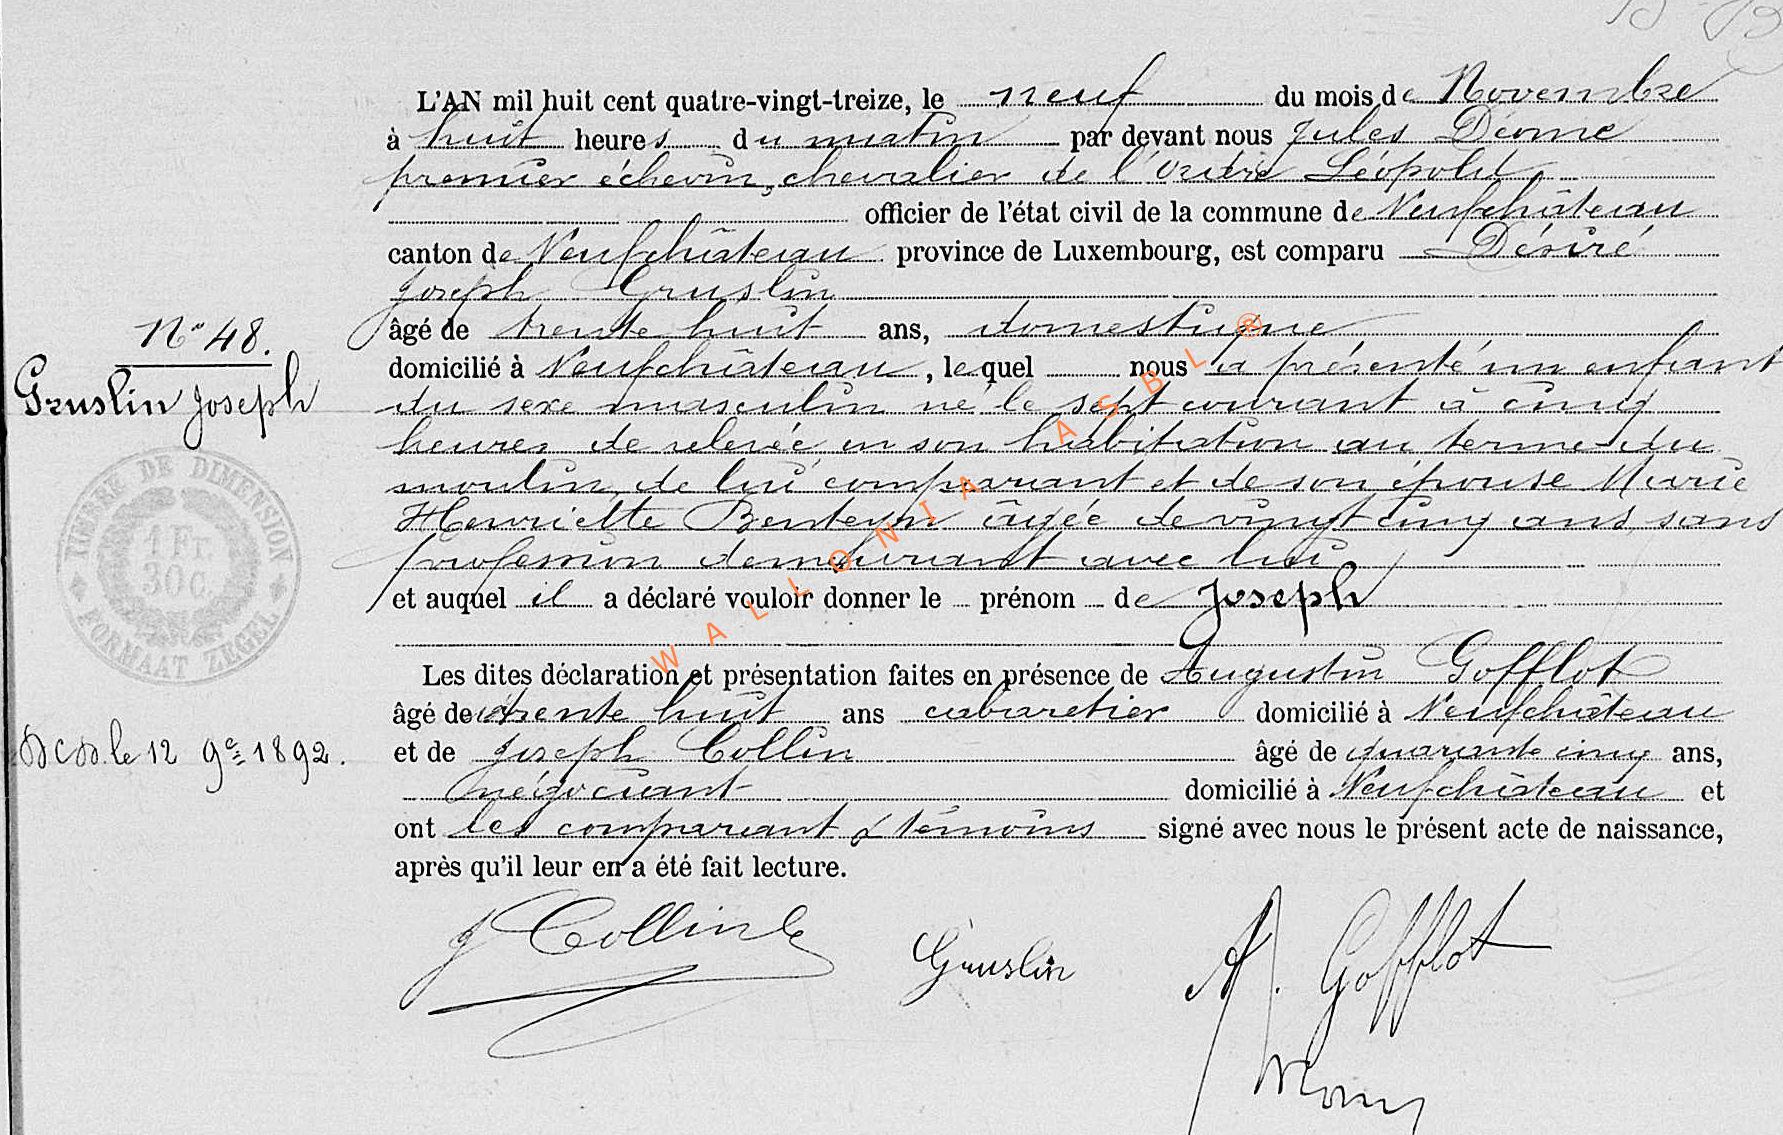 L'AN mil huit cent quatre-vingt-treize, le neuf du mois de Novembre
à huit heures du matin par devant nous Jules
premier échevin, chevalier de l'ordre Léopold
officier de l'état civil de la commune de Neufchâteau
canton de Neufchâteau province de Luxembourg, est comparu Désiré
Joseph Gruslin
âgé de trente huit ans, domestique
domicilié à Neufchâteau, lequel nous a présenté un enfant
du sexe masculin né le sept courant à cinq
heures de relevée en son habitation au terme du
moulin, de lui comparant et de son épouse Marie
Henriette Benteyn âgée de vingt cinq ans, sans
profession demeurant avec lui
et auquel il a déclaré vouloir donner le prénom de Joseph
Les dites déclaration et présentation faites en présence de Augustin Gofflot
âgé de trente huit ans cabaretier domicilié à Neufchâteau
et de Joseph Collin âgé de quarante cinq ans,
négociant domicilié à Neufchâteau et
ont les comparant & témoins signé avec nous le présent acte de naissance,
après qu'il leur en a été fait lecture.
J Collin
Gruslin
A. Gofflot
No 48.
Gruslin Joseph
TIMBRE DE DIMENSION
1 Fr.
30 C.
FORMAAT ZEGEL
Dcd. le 12 9e 1892.
WALLONIA ASBL ®